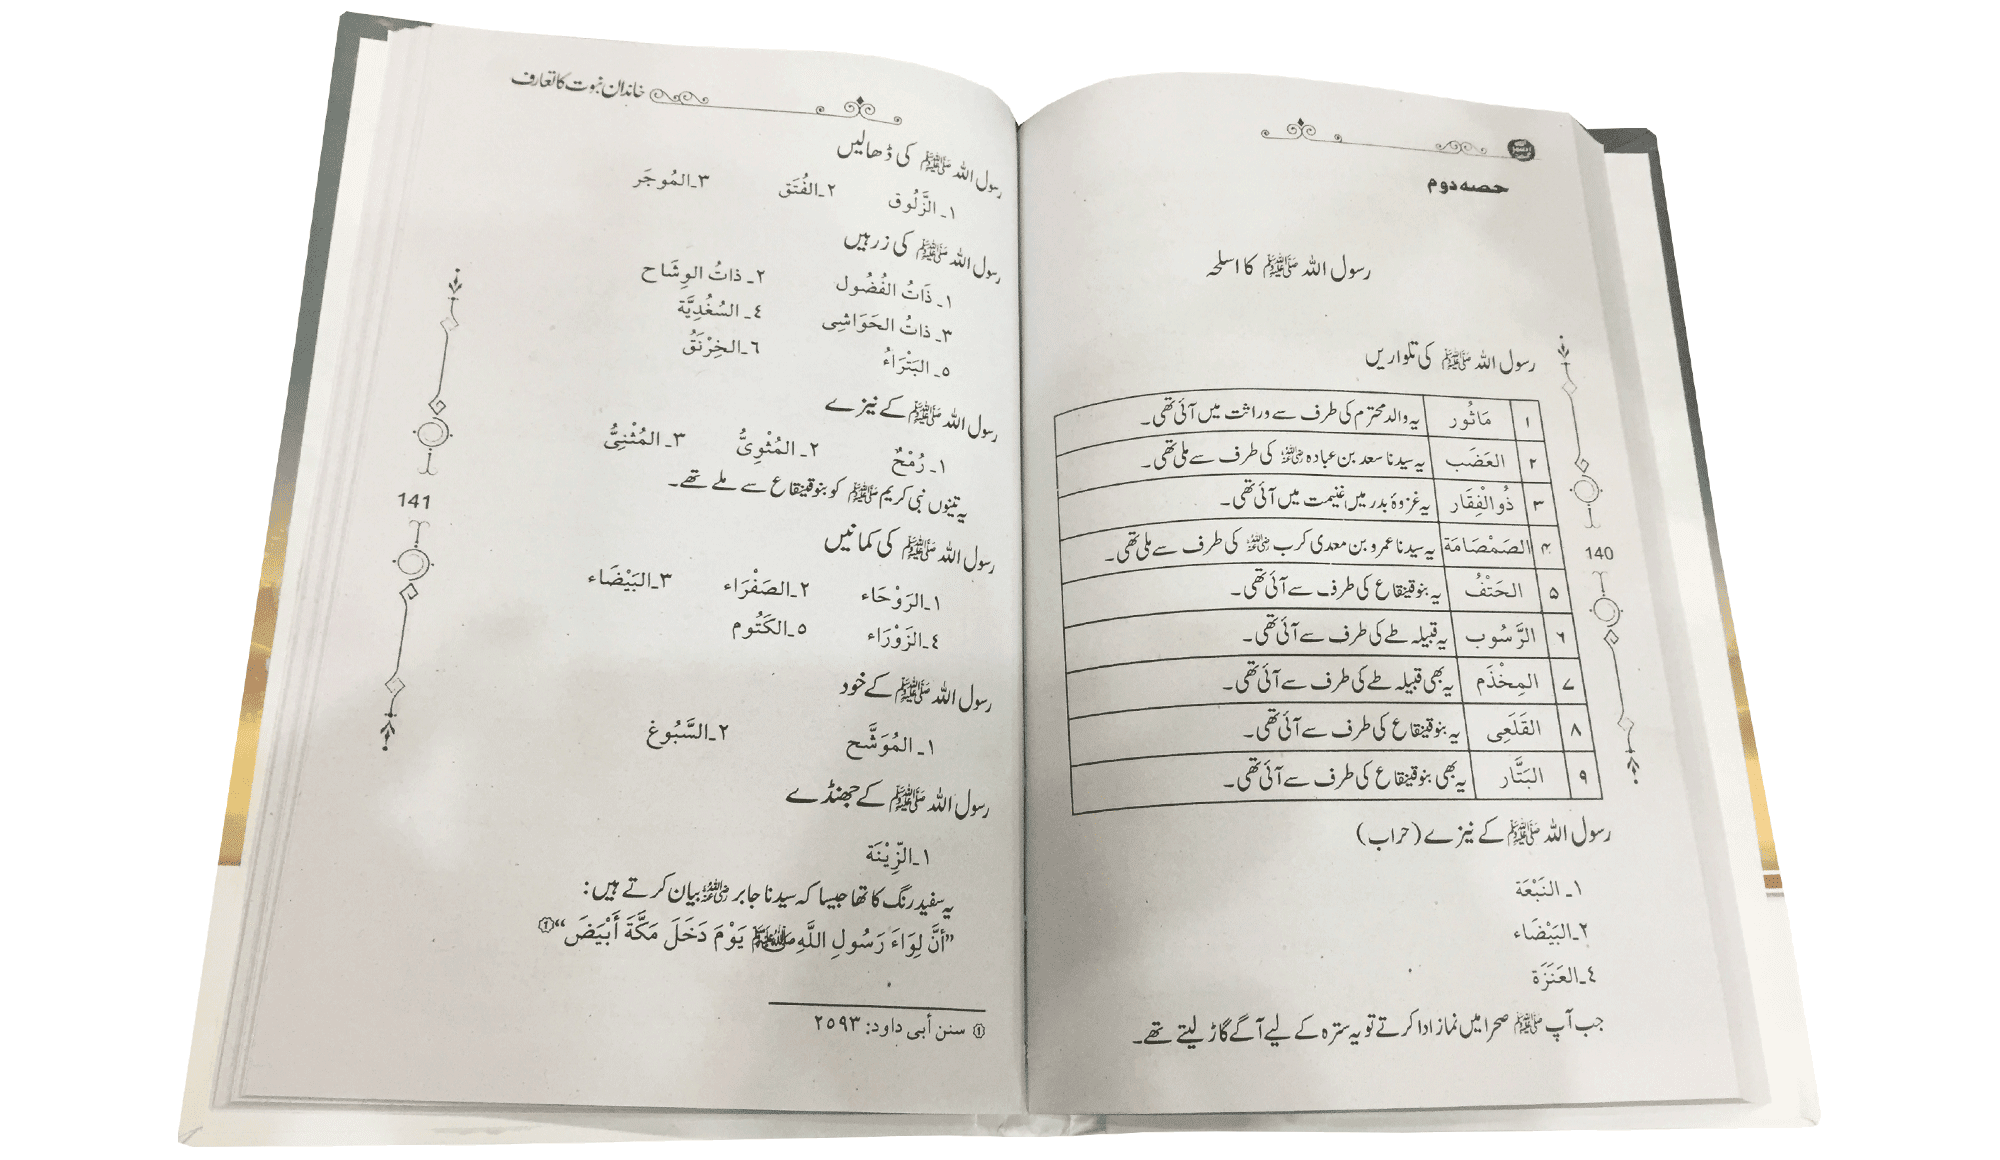 حصہ دوم
رسول اللہ ﷺ کا اسلحہ
رسول اللہ ﷺ کی تلواریں
۱ مَاثُور یہ والد محترم کی طرف سے وراثت میں آئی تھی۔
۲ العَضَب یہ سیدنا سعد بن عبادہ رضی اللہ عنہ کی طرف سے ملی تھی۔
۳ ذُوالْفِقَار یہ غزوۂ بدر میں غنیمت میں آئی تھی۔
۴ الصَمْصَامَة یہ سیدنا عمرو بن معدی کرب رضی اللہ عنہ کی طرف سے ملی تھی۔
۵ الحَتْفُ یہ بنو قینقاع کی طرف سے آئی تھی۔
۶ الرَّسُوب یہ قبیلہ طے کی طرف سے آئی تھی۔
۷ المِخْذَم یہ بھی قبیلہ طے کی طرف سے آئی تھی۔
۸ القَلَعِی یہ بنو قینقاع کی طرف سے آئی تھی۔
۹ البَتَّار یہ بھی بنو قینقاع کی طرف سے آئی تھی۔
رسول اللہ ﷺ کے نیزے (حراب)
١۔ النَبْعَة
٢۔البَيْضَاء
٤۔العَنَزَة
جب آپ ﷺ صحرا میں نماز ادا کرتے تو یہ سترہ کے لیے آگے گاڑ لیتے تھے۔
140
خاندان نبوت کا تعارف
رسول اللہ ﷺ کی ڈھالیں
١۔ الزَّلُوق ٢۔الفُتَق ٣۔المُوجَر
رسول اللہ ﷺ کی زرہیں
١۔ ذَاتُ الفُضُول ٢۔ ذاتُ الوِشَاح
٣۔ ذاتُ الحَوَاشِی ٤۔ السُغْدِيَّة
٥۔ البَتْرَاءُ ٦۔الخِرْنَقُ
رسول اللہ ﷺ کے نیزے
١۔ رُمْحٌ ٢۔ المُثْوِیُّ ٣۔ المُثْنِیُّ
یہ تینوں نبی کریم ﷺ کو بنو قینقاع سے ملے تھے۔
رسول اللہ ﷺ کی کمانیں
١۔الرَوْحَاء ٢۔الصَفْرَاء ٣۔البَيْضَاء
٤۔الزَوْرَاء ٥۔الكَتُوم
رسول اللہ ﷺ کے خود
١۔ المُوَشَّح ٢۔السَّبُوغ
رسول اللہ ﷺ کے جھنڈے
١۔الزِّيْنَة
یہ سفید رنگ کا تھا جیسا کہ سیدنا جابر رضی اللہ عنہ بیان کرتے ہیں:
”أَنَّ لِوَاءَ رَسُولِ اللَّهِ ﷺ يَوْمَ دَخَلَ مَكَّةَ أَبْيَضَ“①
① سنن أبی داود: ٢٥٩٣
141